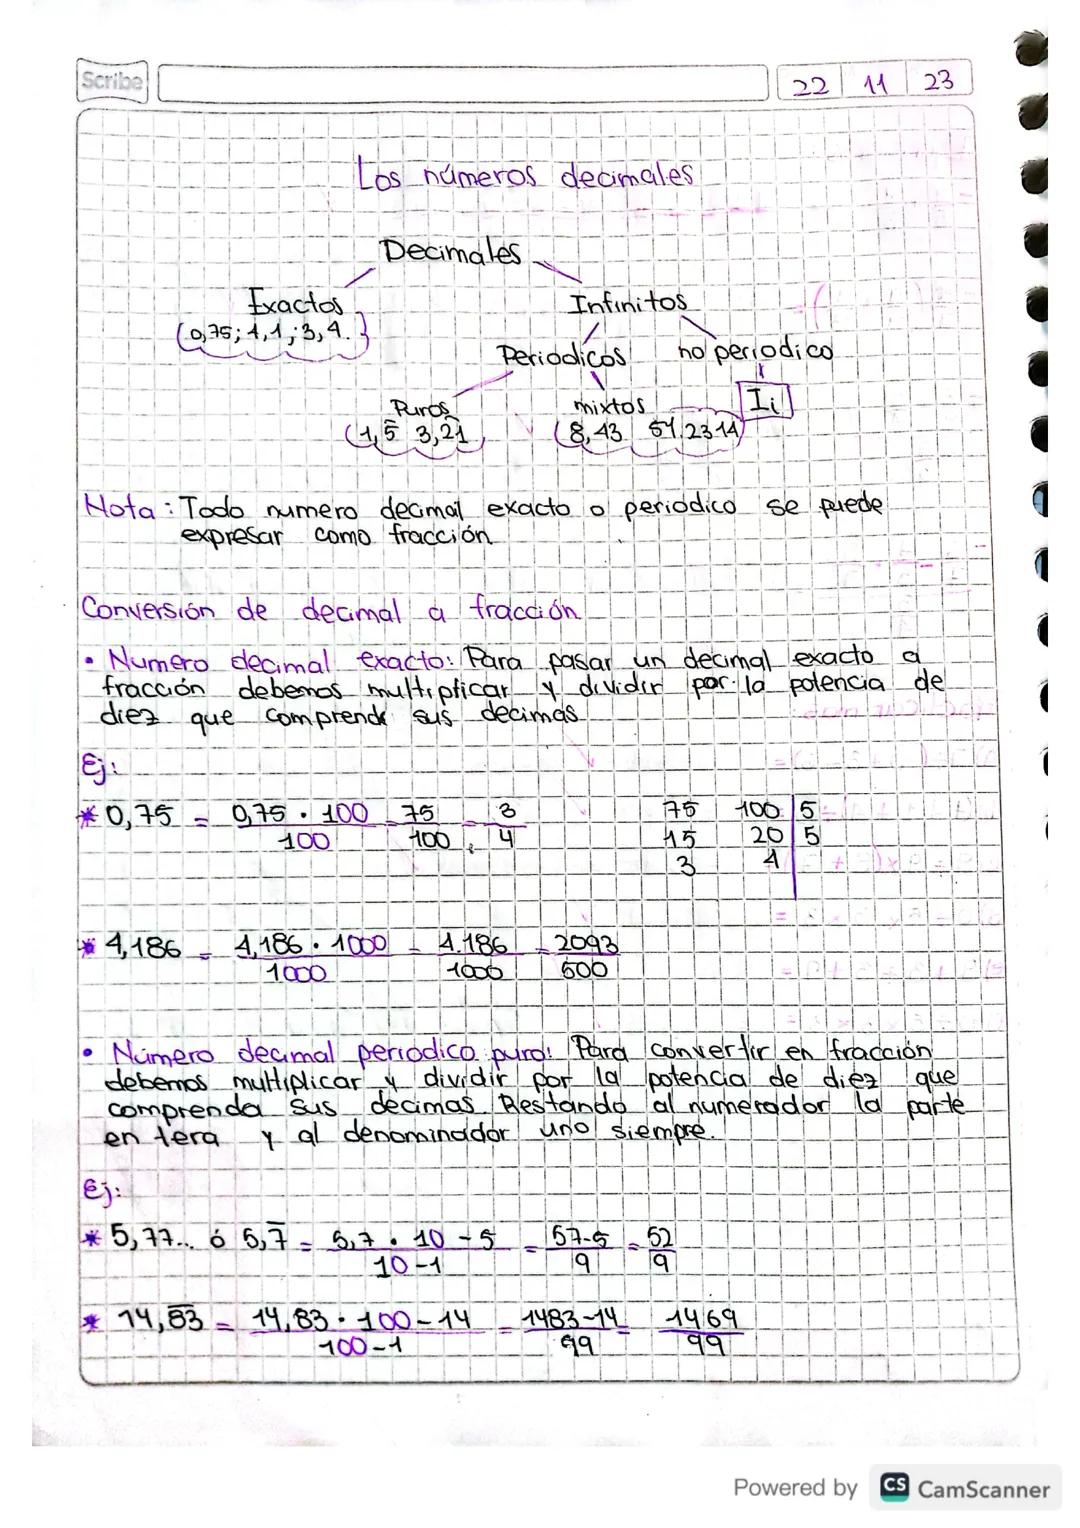 Scribe
22 11 23
Los números decimales
Decimales
Exactos Infinitos
(0,75; 1,1; 3,4.)
Periodicos no periodico
Puros mixtos Ii
(1,5̅ 3,2̅1̅) (8,43 51,2314)
Nota: Todo numero decimal exacto o periodico se puede
expresar como fracción
Conversión de decimal a fracción
• Numero decimal exacto: Para pasar un decimal exacto a
fracción debemos multiplicar y dividir por la potencia de
diez que comprende sus decimas
Ej:
* 0,75 = 0,75 · 100 / 100 = 75 / 100 = 3 / 4 75 100 | 5
15 20 | 5
3 4
* 4,186 = 4,186 · 1000 / 1000 = 4.186 / 1000 = 2093 / 500
• Número decimal periodico puro: Para convertir en fracción
debemos multiplicar y dividir por la potencia de diez que
comprenda sus decimas. Restando al numerador la parte
entera y al denominador uno siempre.
Ej:
* 5,77.. ó 5,7̅ = 5,7 · 10 - 5 / 10-1 = 57-5 / 9 = 52 / 9
* 14,8̅3̅ = 14,83 · 100 - 14 / 100-1 = 1483-14 / 99 = 1469 / 99
Powered by CS CamScanner